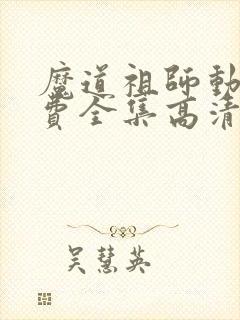 魔道祖師動
費全集高清
吳慧英